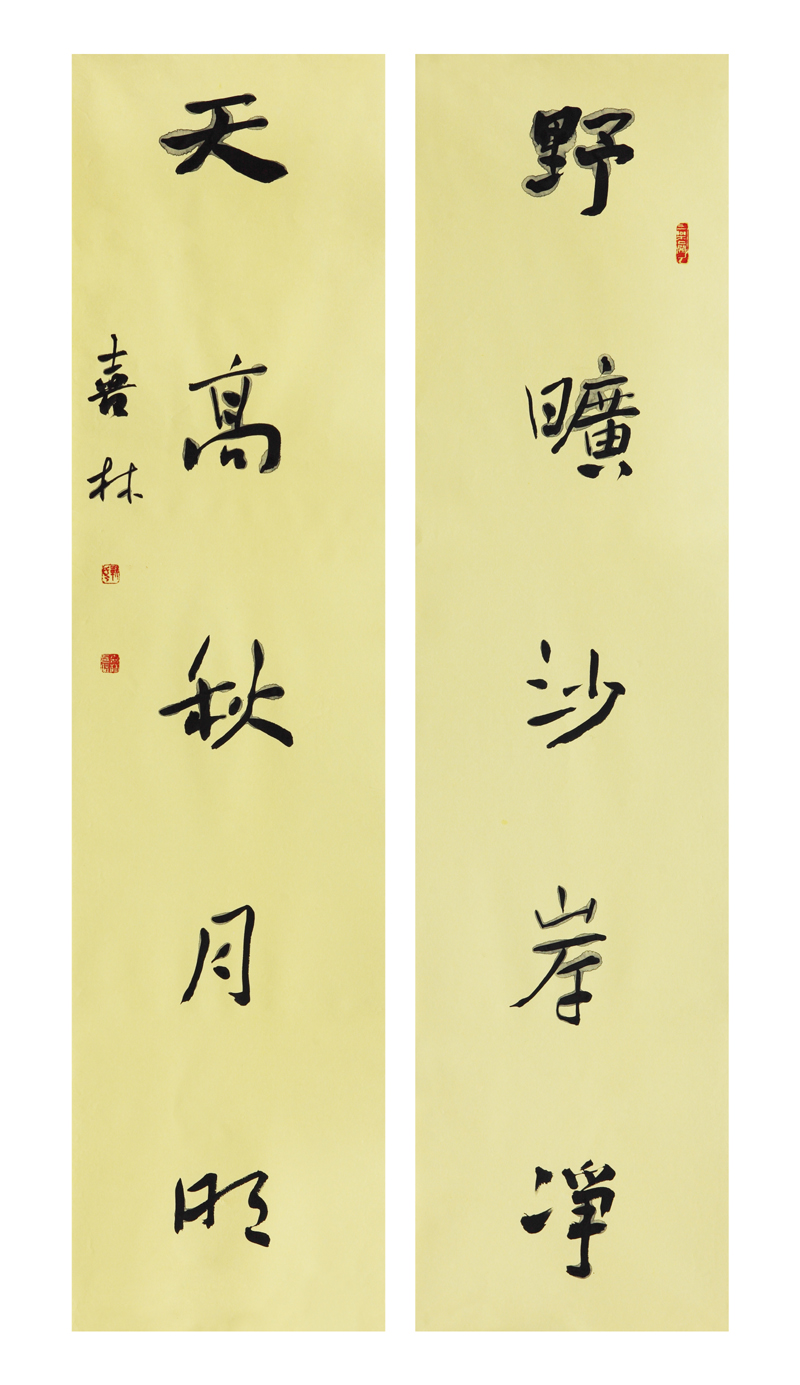 野曠沙岸凈
天高秋月明
喜林